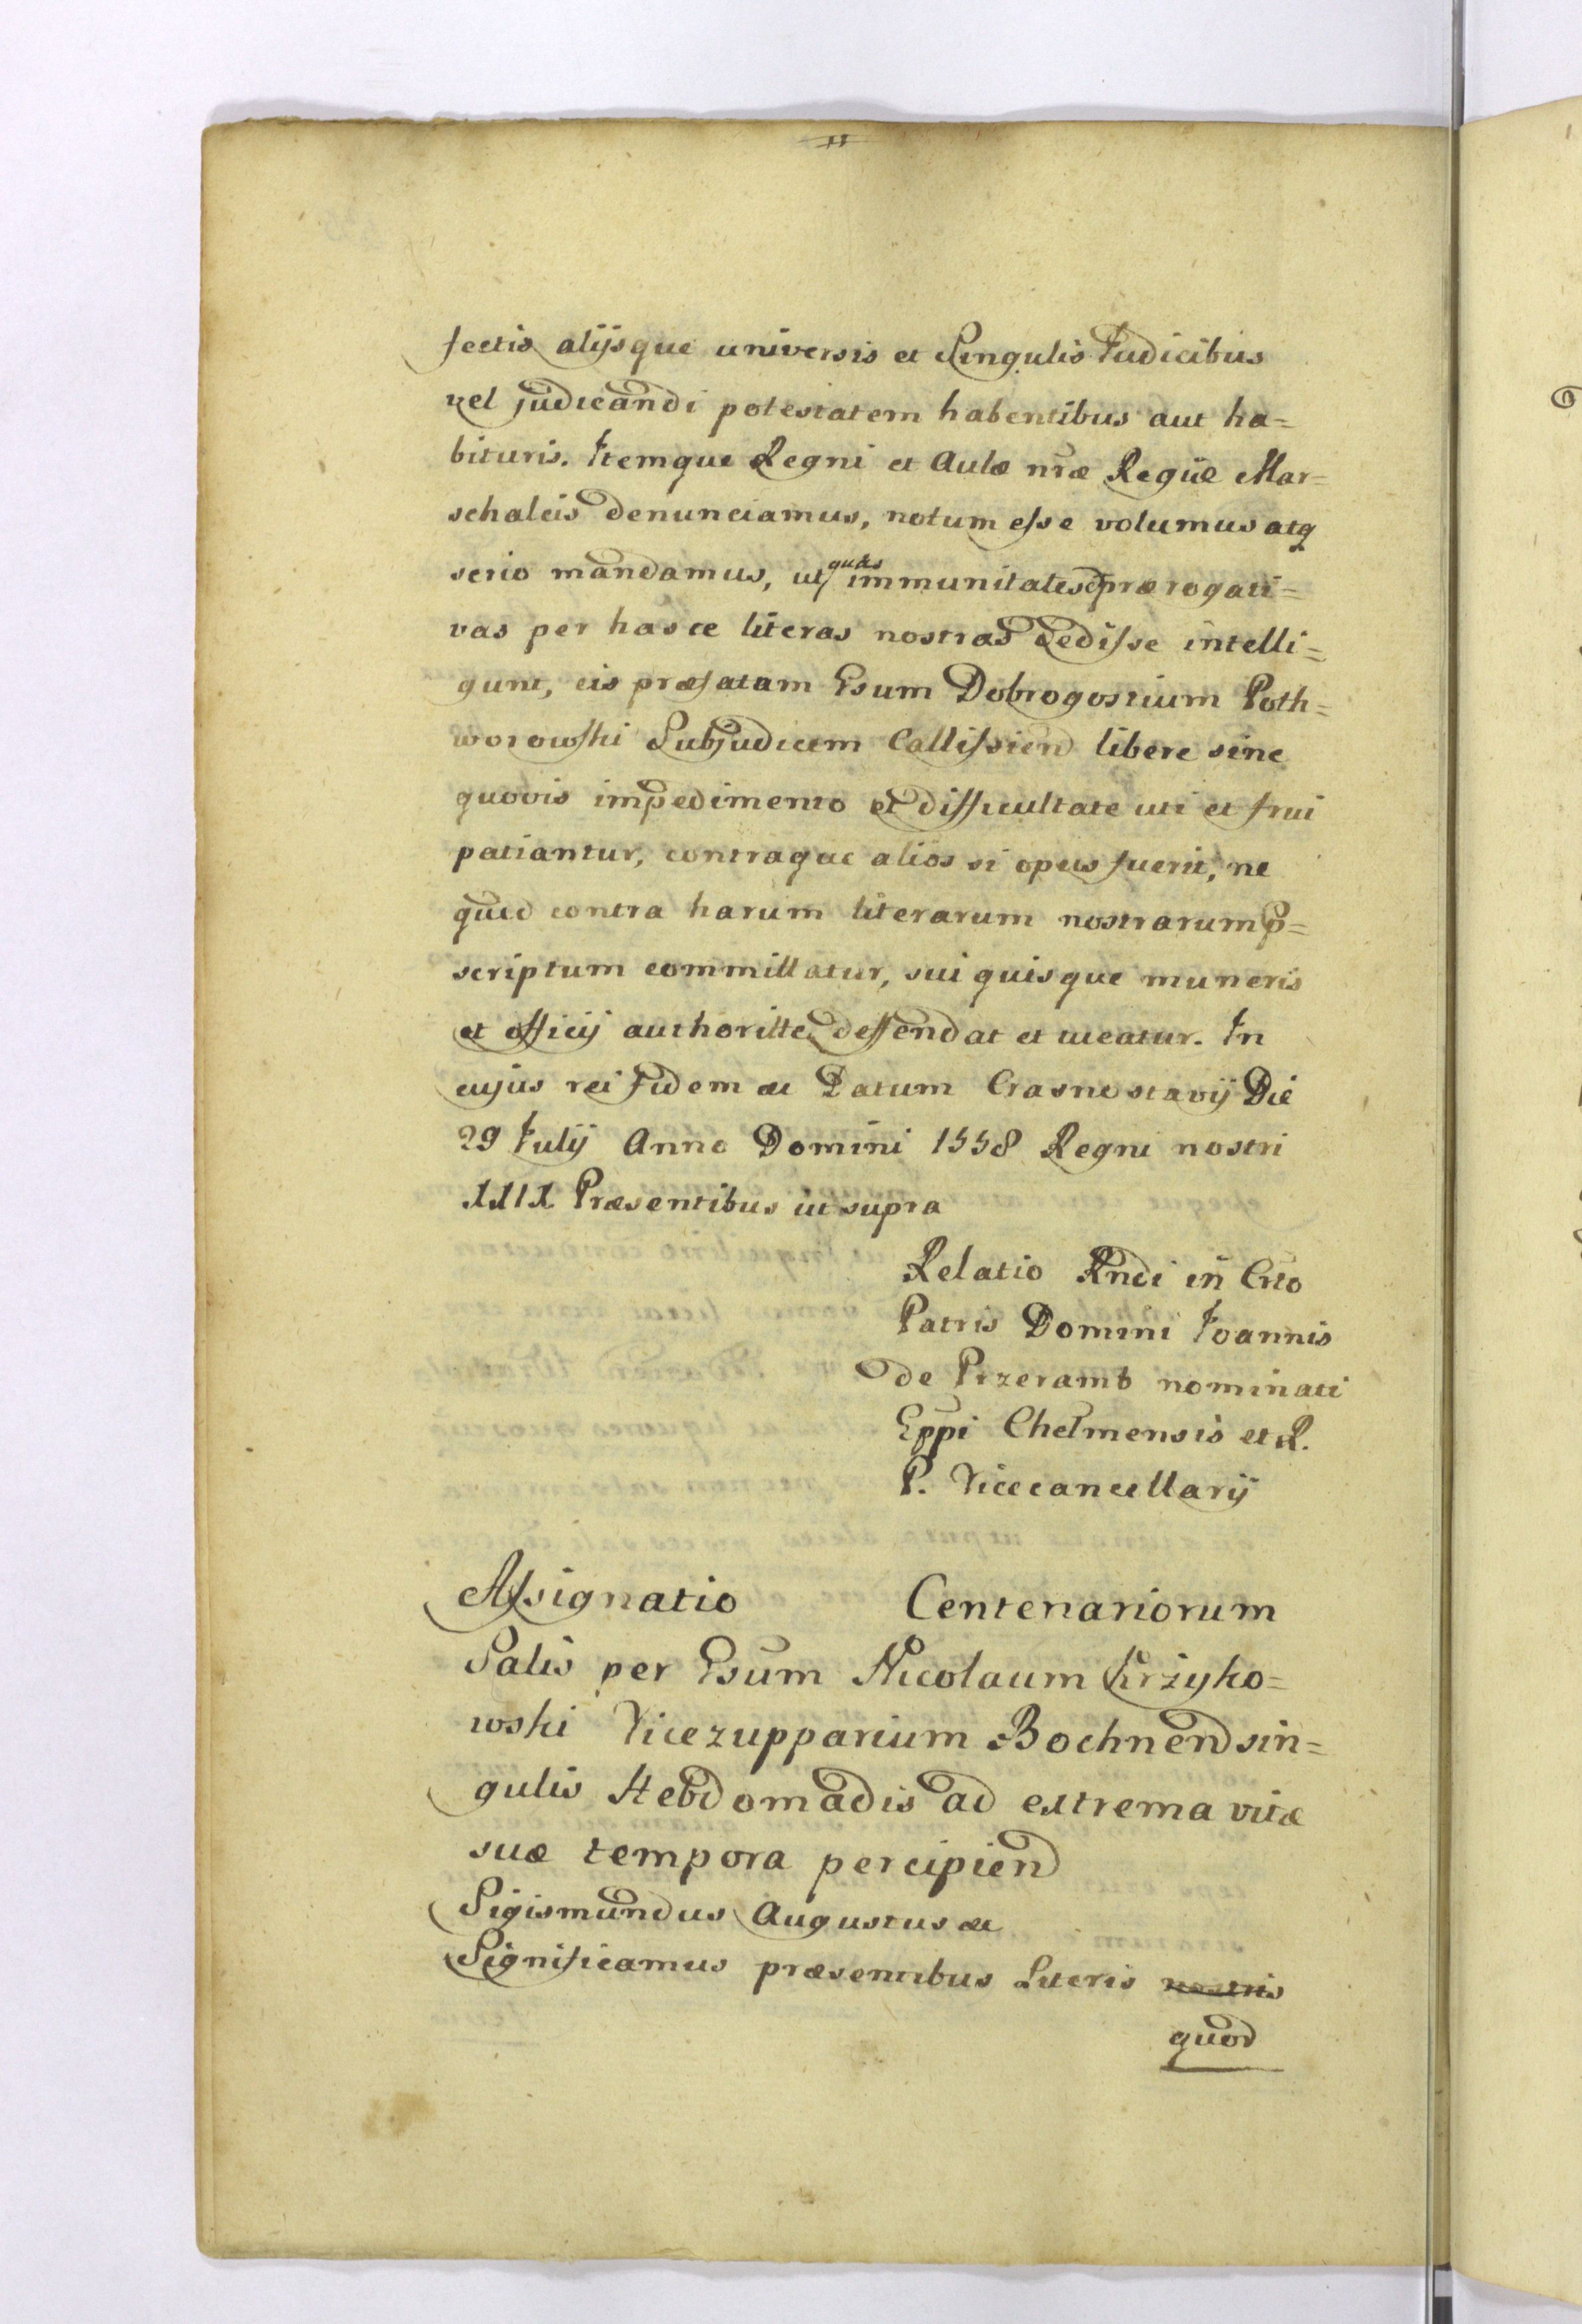 fectis alijsque universis et Singulis Judicibus
vel judicandi potestatem habentibus aut ha=
bituris. Itemque Regni et Aulæ nræ Regiæ Mar=
schalcis denunciamus, notum esse volumus atq
serio mandamus, ut quas immunitates prærogati=
vas per hasce literas nostras dedisse intelli=
gunt, eis præfatam Gsum Dobrogostium Poth=
worowski Subjudicem Callissien libere sine
quovis impedimento et difficultate uti et frui
patiantur, contraque alios si opus fuerit, ne
quid contra harum literarum nostrarum p=
scriptum committatur, sui quisque muneris
et officij authoritte deffendat et tueatur. In
cujus rei fidem &c Datum Crasnostavij Die
29 Julij Anno Domini 1558 Regni nostri
XXIX Præsentibus ut supra
Relatio Rndi in Crto
Patris Domini Joannis
de Przeramb nominati
Eppi Chelmensis et R.
P. Vicecancellarij
Assignatio Centenariorum
Salis per Gsum Nicolaum Krżyko=
wski Vicezupparium Bochnen sin=
gulis Hebdomadis ad extrema vitæ
suæ tempora percipien
Sigismundus Augustus &c
Significamus præsentibus Literis nostris
quod